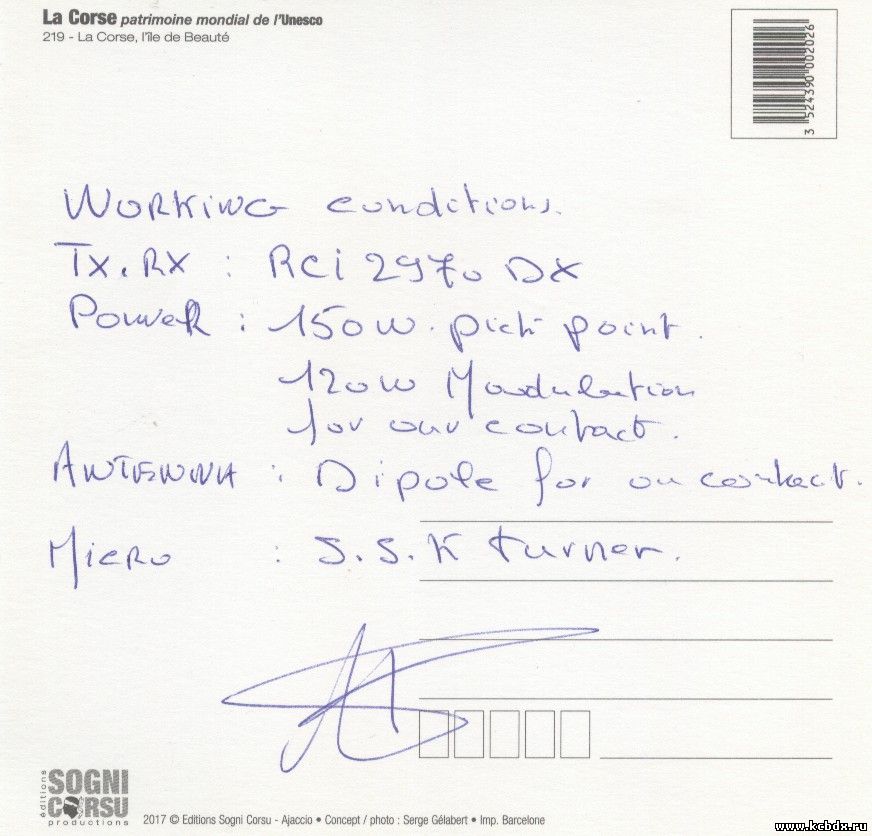 La Corse patrimoine mondial de l'Unesco
219 - La Corse, l'île de Beauté
3 524390 002026
WORKING conditions.
Tx.RX : RCI 2970 DX
Power : 150w. pick point.
120w Modulation
for our contact.
ANTENNA : Dipole for ou contact.
Micro : S.S.K turner.
éditions
SOGNI
CORSU
productions
2017 © Editions Sogni Corsu - Ajaccio • Concept / photo : Serge Gélabert • Imp. Barcelone
www.kcbdx.ru